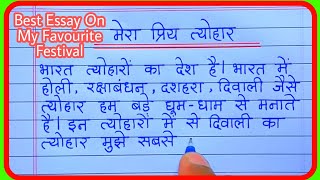 Best Essay On
My Favourite
Festival
मेरा प्रिय त्योहार
भारत त्योहारों का देश है। भारत में
होली, रक्षाबंधन, दशहरा, दिवाली जैसे
त्योहार हम बड़े धूम-धाम से मनाते
है। इन त्योहारों में से दिवाली का
त्योहार मुझे सबसे